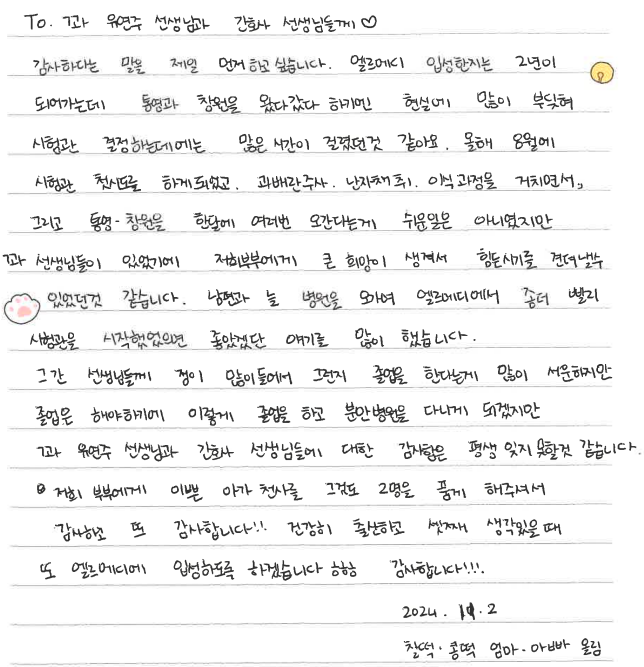 To. 7과 유연주 선생님과 간호사 선생님들께 ♡
감사하다는 말을 제일 먼저 하고 싶습니다. 엘르메디 입성한지는 2년이
되어가는데 통영과 창원을 왔다갔다 하기엔 현실에 많이 부딪혀
시험관 결정하는데에는 많은 시간이 걸렸던것 같아요. 올해 8월에
시험관 첫시도를 하게되었고, 과배란주사, 난자채취, 이식과정을 거치면서,
그리고 통영-창원을 한달에 여러번 오간다는게 쉬운일은 아니였지만
7과 선생님들이 있었기에 저희부부에게 큰 희망이 생겨서 힘든시기를 견뎌낼수
있었던것 같습니다. 남편과 늘 병원을 오가며 엘르메디에서 좀더 빨리
시험관을 시작했었으면 좋았겠단 얘기를 많이 했습니다.
그간 선생님들께 정이 많이들어서 그런지 졸업을 한다는게 많이 서운하지만
졸업은 해야하기에 이렇게 졸업을 하고 분만병원을 다니게 되겠지만
7과 유연주 선생님과 간호사 선생님들에 대한 감사함은 평생 잊지못할것 같습니다.
저희 부부에게 이쁜 아가천사를 그것도 2명을 품게 해주셔서
감사하고 또 감사합니다!! 건강히 출산하고 셋째 생각있을때
또 엘르메디에 입성하도록 하겠습니다 하하 감사합니다!!!.
2024. 11. 2
찰떡·콩떡 엄마·아빠 올림